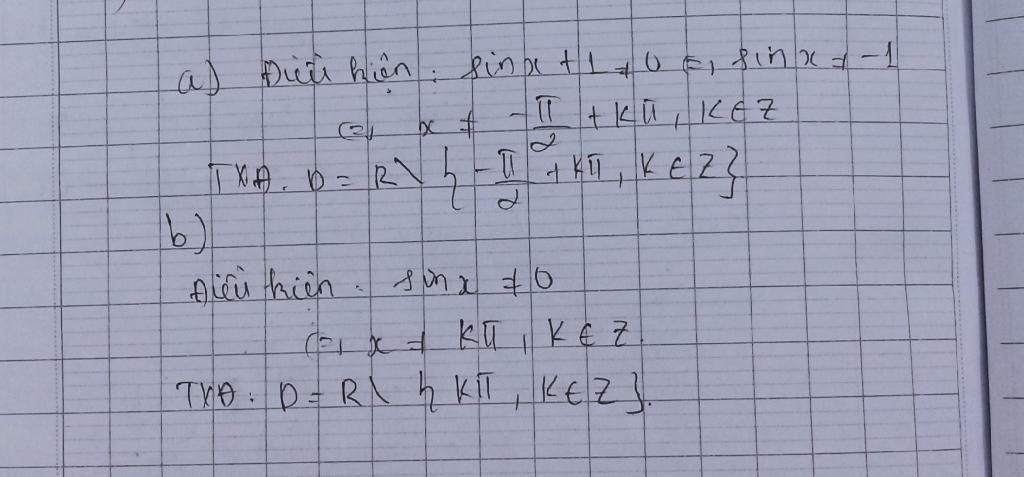 a) Điều kiện : sinx + 1 ≠ 0 <=> sin x ≠ -1
<=> x ≠ -π/2 + kπ, k ∈ Z
TXĐ. D = R \ { -π/2 + kπ, k ∈ Z }
b)
Điều kiện : sin x ≠ 0
<=> x ≠ kπ, k ∈ Z
TXĐ : D = R \ { kπ, k ∈ Z }.